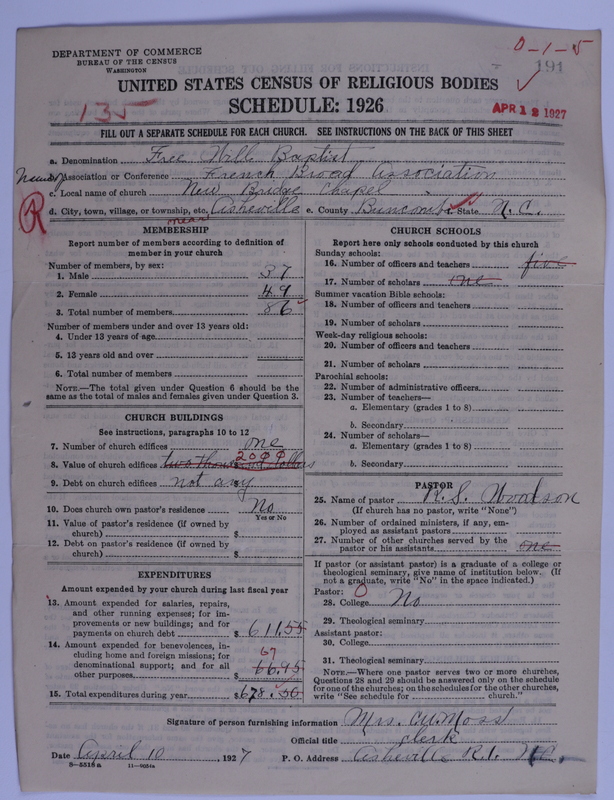 DEPARTMENT OF COMMERCE
BUREAU OF THE CENSUS
WASHINGTON
0-1-5
191
UNITED STATES CENSUS OF RELIGIOUS BODIES
SCHEDULE: 1926
135
APR 12 1927
FILL OUT A SEPARATE SCHEDULE FOR EACH CHURCH. SEE INSTRUCTIONS ON THE BACK OF THIS SHEET
a. Denomination Free Will Baptist
b. Association or Conference French Broad Association
c. Local name of church New Bridge Chapel
d. City, town, village, or township, etc. Asheville e. County Buncombe State N.C.
near
R
MEMBERSHIP
Report number of members according to definition of member in your church
Number of members, by sex:
1. Male 37
2. Female 49
3. Total number of members 86
Number of members under and over 13 years old:
4. Under 13 years of age
5. 13 years old and over
6. Total number of members
NOTE.—The total given under Question 6 should be the same as the total of males and females given under Question 3.
CHURCH BUILDINGS
See instructions, paragraphs 10 to 12
7. Number of church edifices one
2000
8. Value of church edifices two thousand dollars
9. Debt on church edifices not any
10. Does church own pastor's residence No
Yes or No
11. Value of pastor's residence (if owned by church) $
12. Debt on pastor's residence (if owned by church) $
EXPENDITURES
Amount expended by your church during last fiscal year
13. Amount expended for salaries, repairs, and other running expenses; for improvements or new buildings; and for payments on church debt $ 611.55
14. Amount expended for benevolences, including home and foreign missions; for denominational support; and for all other purposes 66.95
67
15. Total expenditures during year $ 678.50
CHURCH SCHOOLS
Report here only schools conducted by this church
Sunday schools:
16. Number of officers and teachers five
17. Number of scholars one
Summer vacation Bible schools:
18. Number of officers and teachers
19. Number of scholars
Week-day religious schools:
20. Number of officers and teachers
21. Number of scholars
Parochial schools:
22. Number of administrative officers
23. Number of teachers—
a. Elementary (grades 1 to 8)
b. Secondary
24. Number of scholars—
a. Elementary (grades 1 to 8)
b. Secondary
PASTOR
25. Name of pastor R. S. Woodson
(If church has no pastor, write "None")
26. Number of ordained ministers, if any, employed as assistant pastors
27. Number of other churches served by the pastor or his assistants one
If pastor (or assistant pastor) is a graduate of a college or theological seminary, give name of institution below. (If not a graduate, write "No" in the space indicated.)
Pastor: 0
28. College No
29. Theological seminary
Assistant pastor:
30. College
31. Theological seminary
NOTE.—Where one pastor serves two or more churches, Questions 28 and 29 should be answered only on the schedule for one of the churches; on the schedules for the other churches, write "See schedule for church."
Signature of person furnishing information Mrs. Moss
Official title clerk
Date April 10, 1927 P. O. Address Asheville R.1. N.C.
8-5518 a 11-9034a